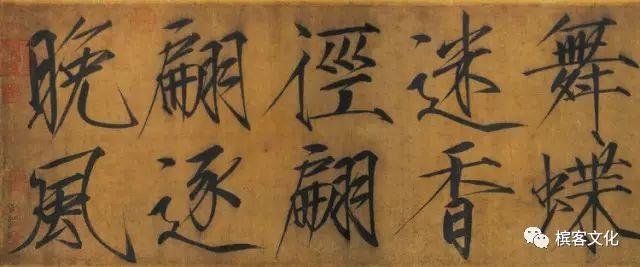 舞蝶
迷香
徑翩
翩逐
晚風
槟客文化